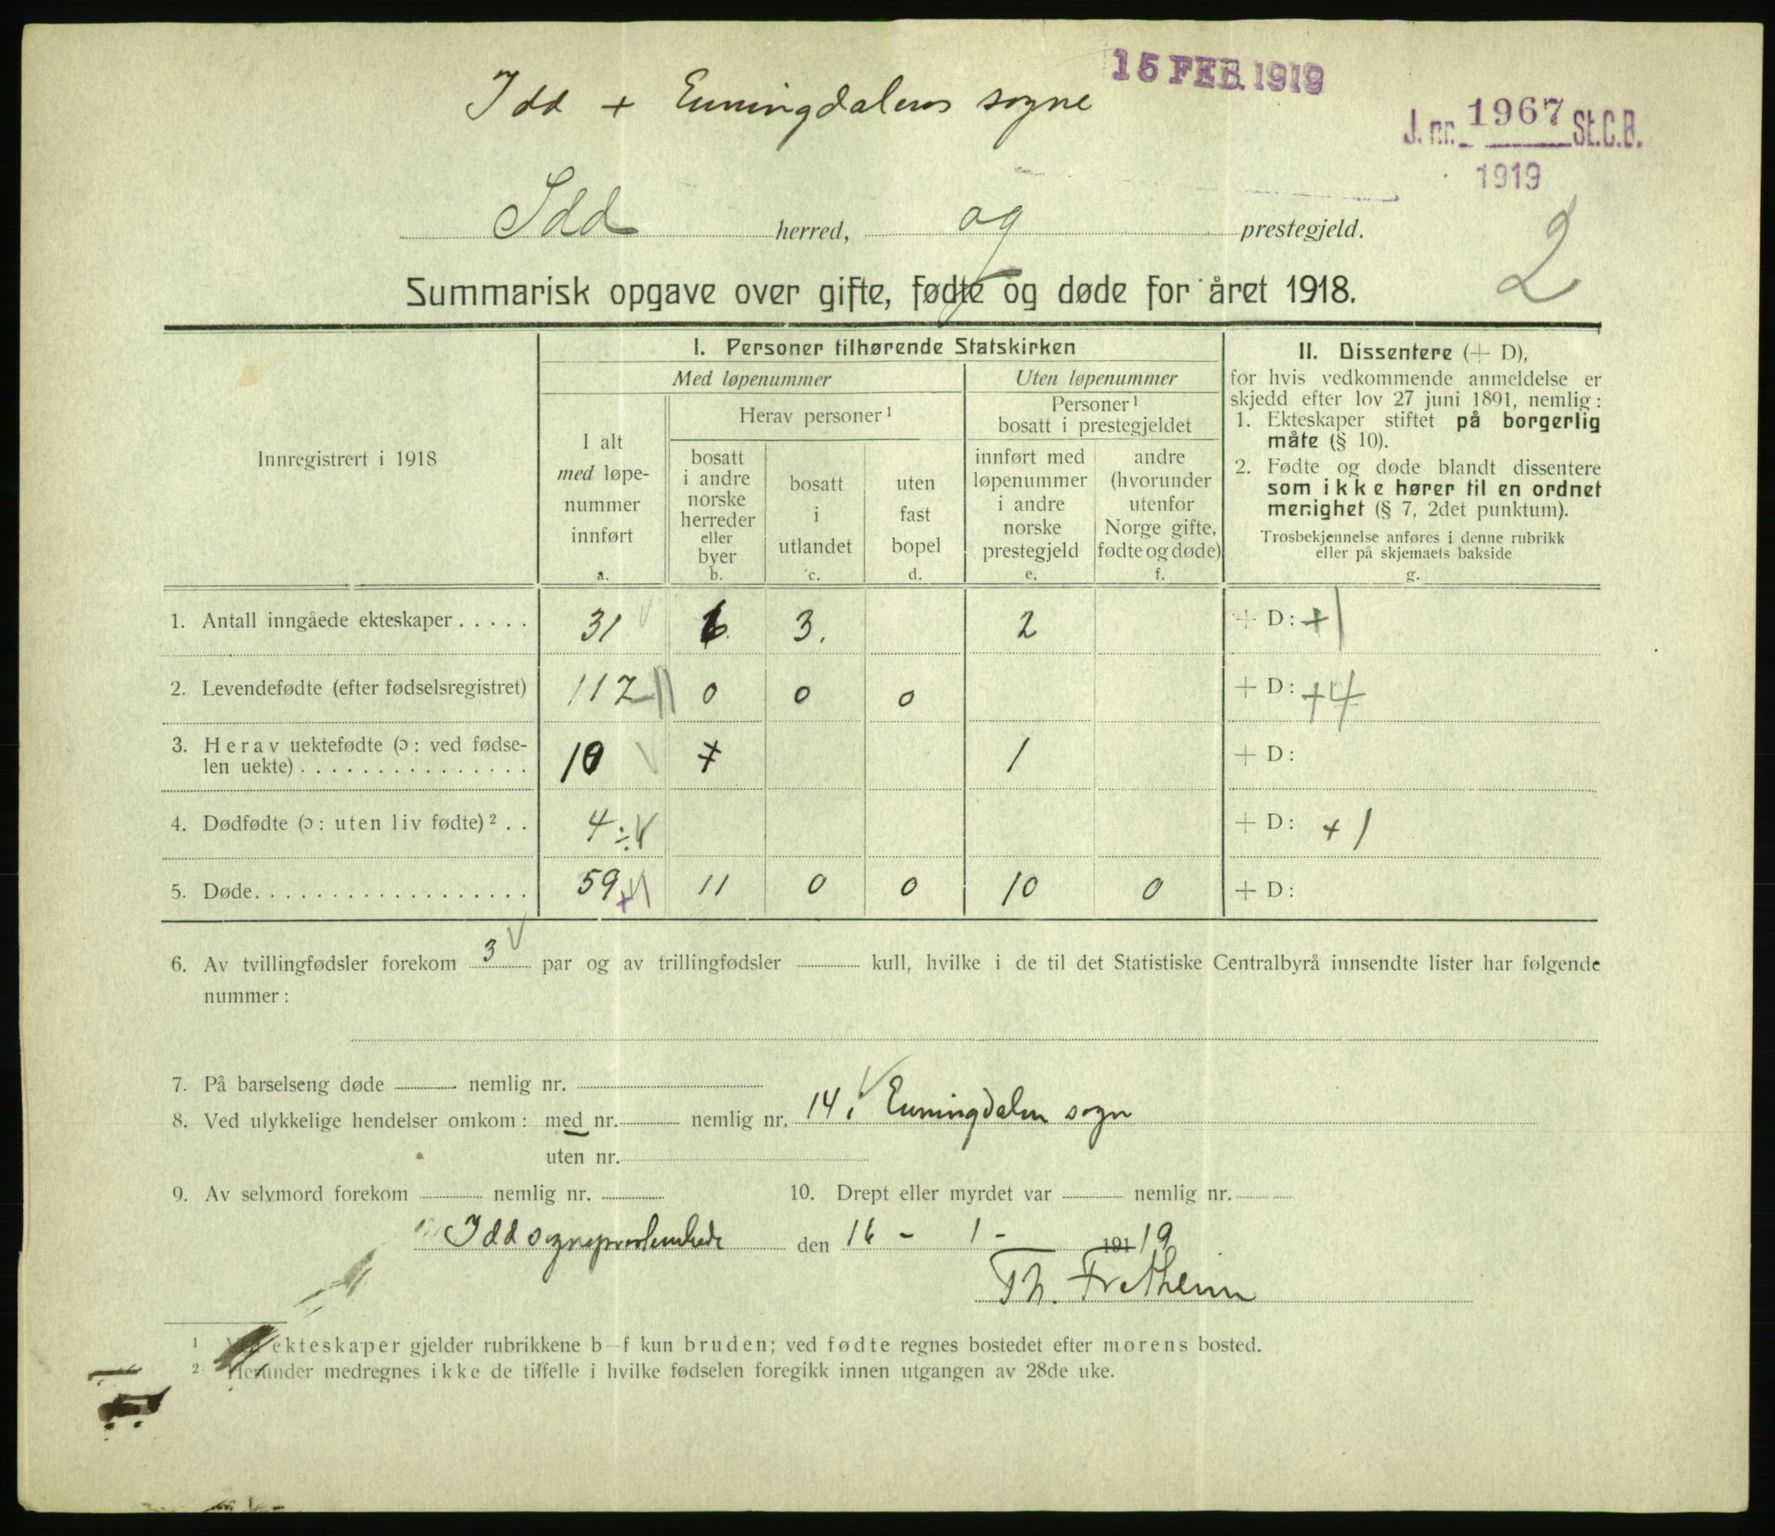 15 FEB. 1919
Idd + Enningdalens sogne
J. nr. 1967 St.C.B.
1919
Idd herred, og prestegjeld.
2
Summarisk opgave over gifte, fødte og døde for året 1918.
Innregistrert i 1918
I. Personer tilhørende Statskirken
Med løpenummer
Uten løpenummer
I alt
med løpe-
nummer
innført
a.
Herav personer ¹
bosatt
i andre
norske
herreder
eller
byer
b.
bosatt
i
utlandet
c.
uten
fast
bopel
d.
Personer ¹
bosatt i prestegjeldet
innført med
løpenummer
i andre
norske
prestegjeld
e.
andre
(hvorunder
utenfor
Norge gifte,
fødte og døde)
f.
II. Dissentere (+ D),
for hvis vedkommende anmeldelse er
skjedd efter lov 27 juni 1891, nemlig:
1. Ekteskaper stiftet på borgerlig
måte (§ 10).
2. Fødte og døde blandt dissentere
som ikke hører til en ordnet
menighet (§ 7, 2det punktum).
Trosbekjennelse anføres i denne rubrikk
eller på skjemaets bakside
g.
1. Antall inngåede ekteskaper . . . . . 31 6 3. 2 + D: +1
2. Levendefødte (efter fødselsregistret) 112 0 0 0 + D: +4
3. Herav uektefødte (ɔ: ved fødse-
len uekte) . . . . . . . . . . . . . . . 10 + 1 + D:
4. Dødfødte (ɔ: uten liv fødte) ² . . 4 ÷ + D: +1
5. Døde. . . . . . . . . . . . . . . . . . 59 +1 11 0 0 10 0 + D:
6. Av tvillingfødsler forekom 3 par og av trillingfødsler kull, hvilke i de til det Statistiske Centralbyrå innsendte lister har følgende
nummer:
7. På barselseng døde nemlig nr.
8. Ved ulykkelige hendelser omkom: med nr. nemlig nr. 14 i Enningdalen sogn
uten nr.
9. Av selvmord forekom nemlig nr. 10. Drept eller myrdet var nemlig nr.
Idd sogneprestembede den 16 - 1 - 191 19
Th. Fretheim
¹ Ved ekteskaper gjelder rubrikkene b–f kun bruden; ved fødte regnes bostedet efter morens bosted.
² Herunder medregnes ikke de tilfelle i hvilke fødselen foregikk innen utgangen av 28de uke.